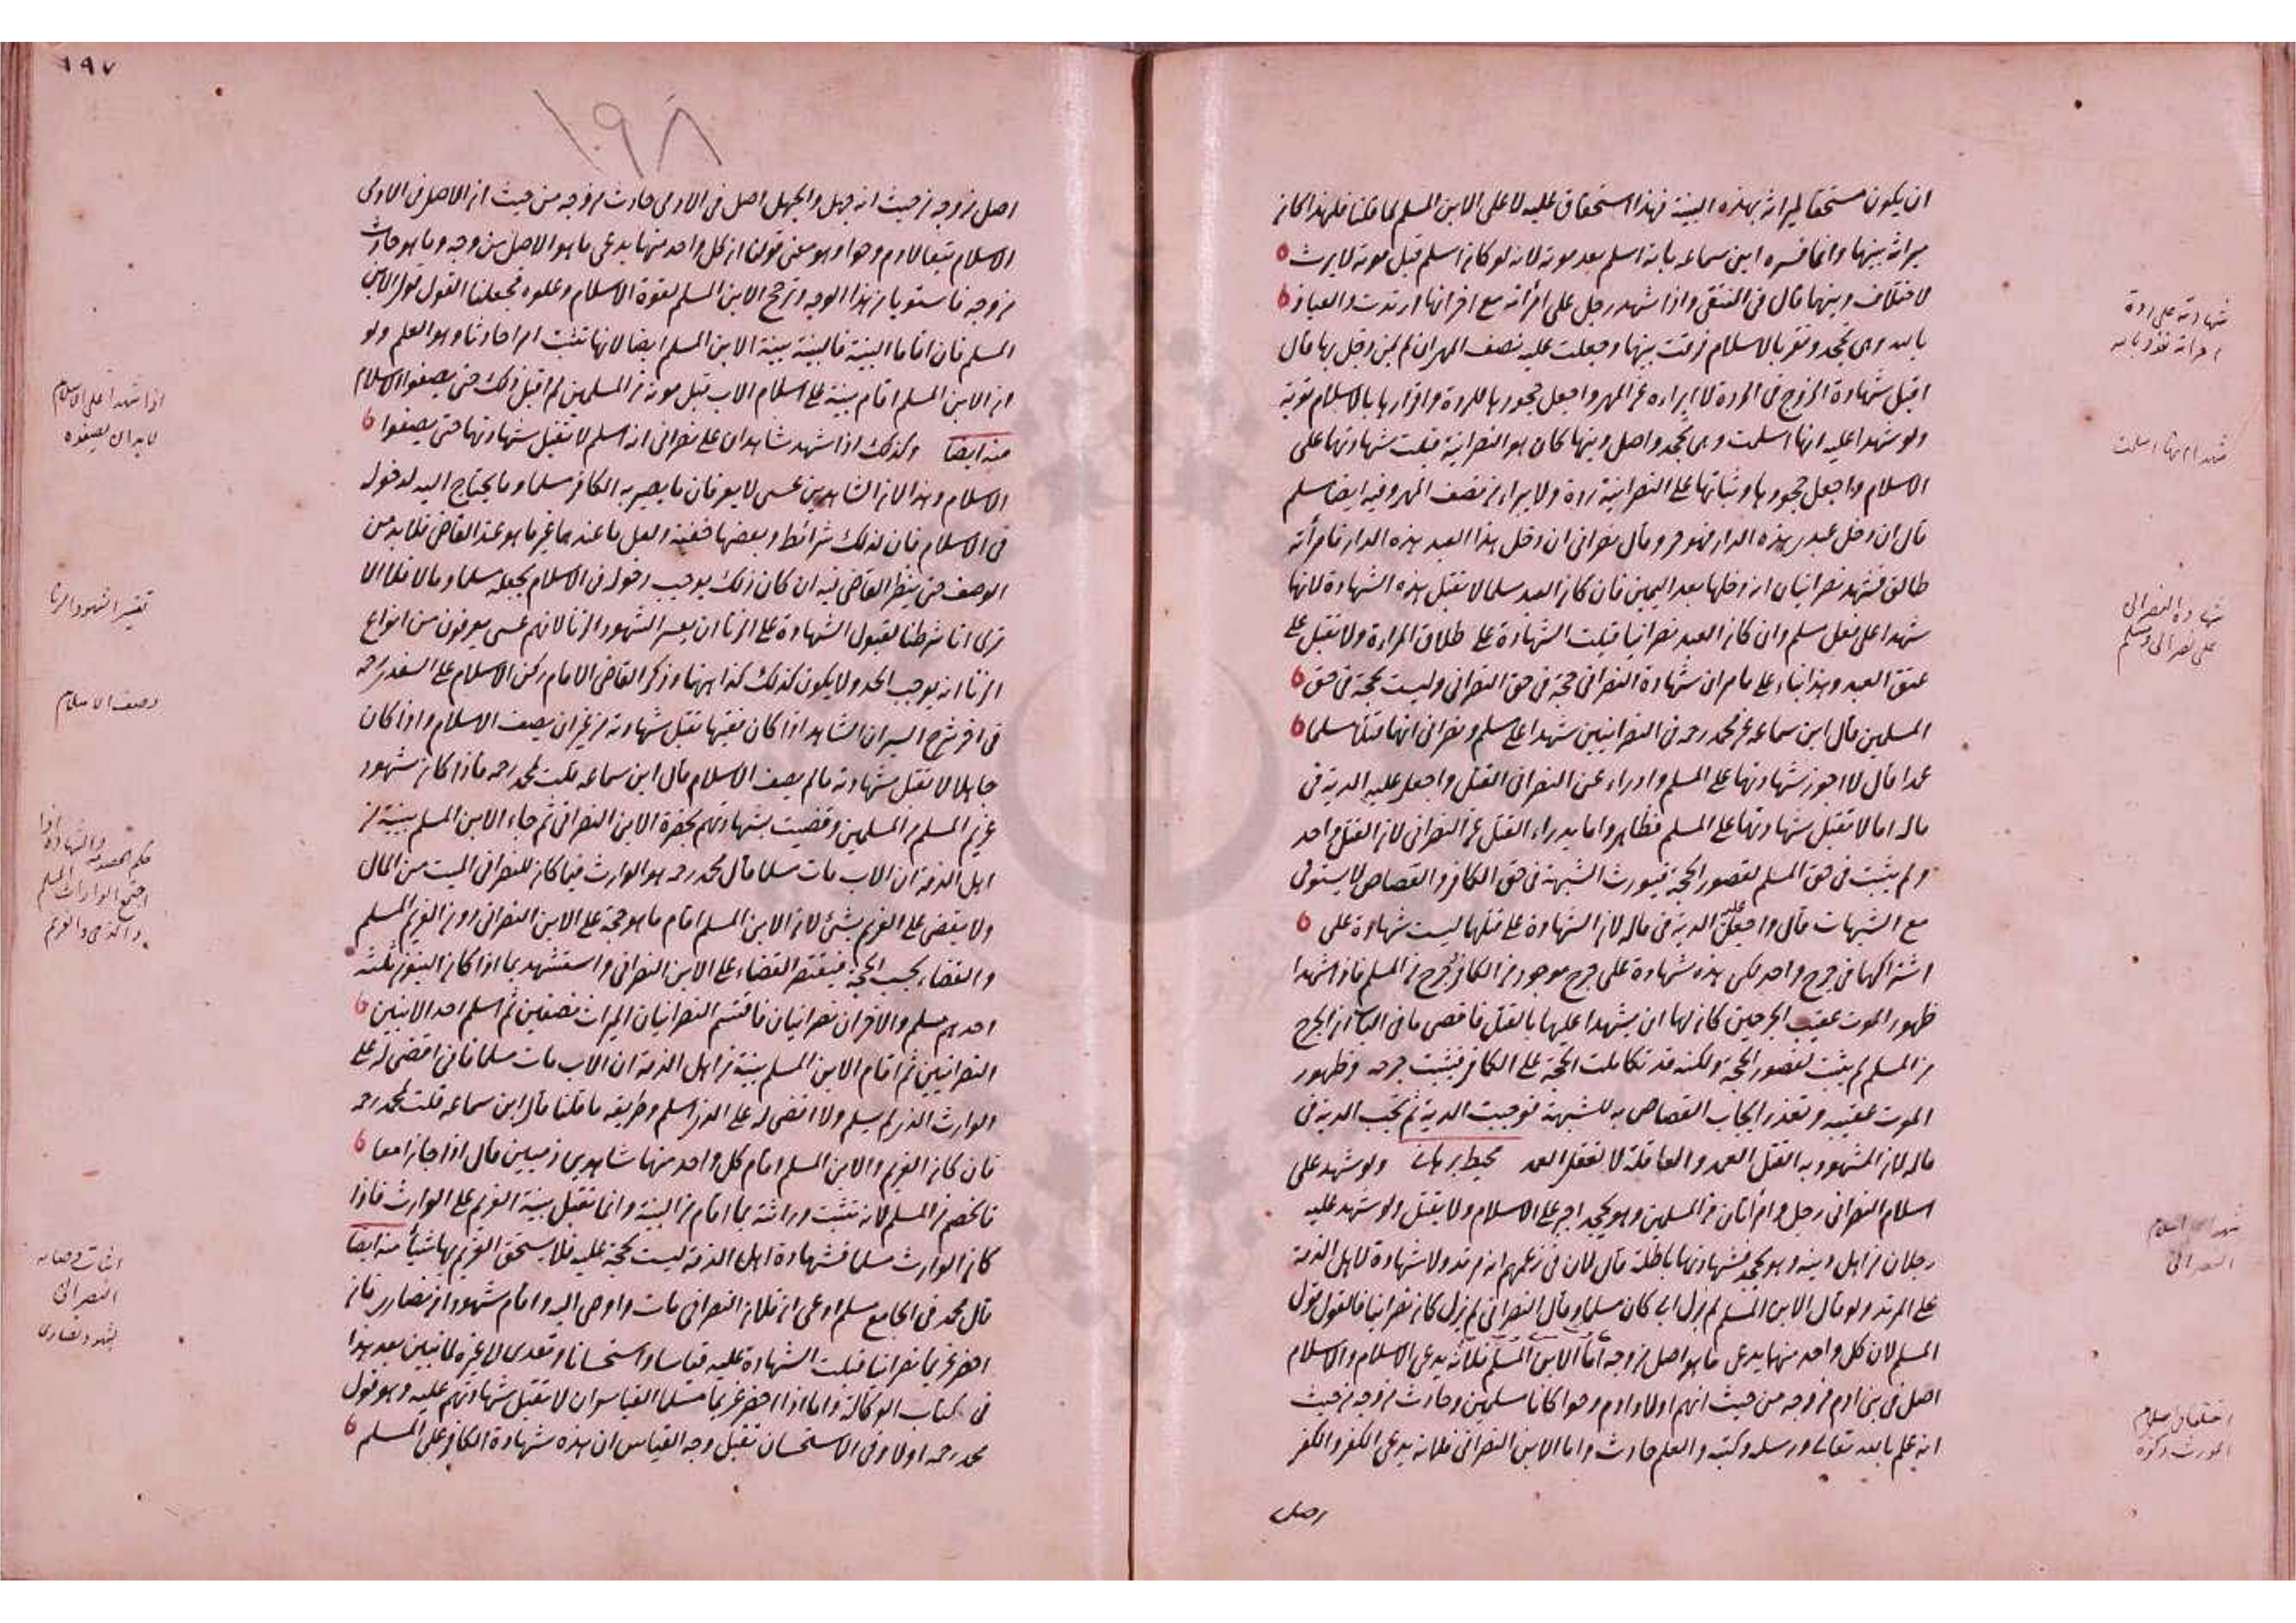 ان يكون مستحقا لميراثه بهذه البينة فهذا استحقاق عليه لا على الابن المسلم لما قلنا فلهذا كان
ميراثه بينهما وانما فسره ابن سماعه بانه اسلم بعد موته لانه لو كان اسلم قبل موته لا يرث
لاختلاف دينهما قال في المنتقى واذا شهد رجل على امرأته مع اخر انها ارتدت والعياذ
بالله وهي تجحد وتقر بالاسلام فرقت بينهما وجعلت عليه نصف المهر ان لم يكن دخل بها قال
اقبل شهادة الزوج في الردة لابراءه عن المهر واجعل جحودها للردة واقرارها بالاسلام توبة
ولو شهدا عليه انها اسلمت وهي تجحد واصل دينها كان هو النصرانية قبلت شهادتهما على
الاسلام واجعل جحودها وثباتها على النصرانية ردة ولا يبراء من نصف المهر وفيه ايضا مسلم
قال ان دخل عبدي هذه الدار فهو حر وقال نصراني ان دخل هذا العبد هذه الدار فامرأته
طالق فشهد نصرانيان انه دخلها بعد اليمين فان كان العبد مسلما لا تقبل هذه الشهادة لانها
شهدا على فعل مسلم وان كان العبد نصرانيا قبلت الشهادة على طلاق المراءة ولا تقبل على
عتق العبد وهذا بناء على ما مر ان شهادة النصراني حجة في حق النصراني وليست بحجة في حق
المسلمين قال ابن سماعه عن محمد رحه في النصرانيين شهدا على مسلم ونصراني انهما قتلا مسلما
عمدا قال لا اجوز شهادتهما على المسلم وادراء عن النصراني القتل واجعل عليه الدية في
ماله اما لا تقبل شهادتهما على المسلم فظاهر واما يدراء القتل عن النصراني لان القتل واحد
ولم يثبت في حق المسلم لقصور الحجة فيورث الشبهة في حق الكافر والقصاص لا يستوفى
مع الشبهات قال واجعل عليه الدية في ماله لان الشهادة على قتلهما ليست شهادة على
اشتراكهما في جرح واحد لكن هذه شهادة على جرح موجود من الكافر وجرح من المسلم فاذا شهدا
ظهور الموت عقيب الجرحين كان لهما ان يشهدا عليهما بالقتل فاقصى ما في الباب ان الجرح
من المسلم لم يثبت لقصور الحجة ولكنه قد تكاملت الحجة على الكافر فيثبت جرحه وظهور
الموت عقيبه وتعذر ايجاب القصاص به للشبهة فوجبت الدية ثم تجب الدية في
ماله لان المشهود به القتل العمد والعاقلة لا تعقل العمد محيط برهاني ولو شهد على
اسلام النصراني رجل وامرأتان من المسلمين وهو يجحد اجبر على الاسلام ولا يقتل ولو شهد عليه
رجلان من اهل دينه وهو يجحد فشهادتهما باطلة قال لان في زعمهم انه مرتد ولا شهادة لاهل الذمة
على المرتد ولو قال الابن المسلم لم يزل ابي كان مسلما وقال النصراني لم يزل كان نصرانيا فالقول قول
المسلم لان كل واحد منهما يدعي ما هو اصل من وجه اما الابن المسلم فلانه يدعي الاسلام والاسلام
اصل في بني ادم من وجه من حيث انهم اولاد ادم وحوا كانا مسلمين وحادث من وجه من حيث
انه علم بالله تعالى ورسله وكتبه والعلم حادث واما الابن النصراني فلانه يدعي الكفر والكفر
اصل
شهادته على ردة
امراته نعوذ بالله
شهدا انها اسلمت
شهادة النصراني
على نصراني ومسلم
شهدا على اسلام
النصراني
اختلفا في اسلام
المورث وكفره
١٩٧
١٩٨
اصل من وجه من حيث انه جهل والجهل اصل في الادمي حادث من وجه من حيث ان الاصل في الادمى
الاسلام تبعا لادم وحوا وهو معنى قولنا ان كل واحد منهما يدعي ما هو الاصل من وجه وما هو حادث
من وجه فاستويا من هذا الوجه وترجح الابن المسلم لقوة الاسلام وعلوه فجعلنا القول قول الابن
المسلم فان اقاما البينة فالبينة بينة الابن المسلم ايضا لانها تثبت امرا حادثا وهو العلم ولو
ان الابن المسلم اقام بينة على اسلام الاب قبل موته من المسلمين لم اقبل ذلك حتى يصفوا الاسلام
منه ايضا وكذلك اذا شهد شاهدان على نصراني انه اسلم لا تقبل شهادتهما حتى يصفوا
الاسلام وهذا لان الشاهدين عسى لا يعرفان ما يصير به الكافر مسلما وما يحتاج اليه لدخوله
في الاسلام فان لذلك شرائط وبعضها خفية ولعل ما عندهما غير ما هو عند القاضي فلا بد من
الوصف حتى ينظر القاضي فيه ان كان ذلك يوجب دخوله في الاسلام يجعله مسلما ومالا فلا الا
ترى انا شرطنا لقبول الشهادة على الزنا ان يفسر الشهود الزنا لانهم عسى يعرفون من انواع
الزنا انه يوجب الحد ولا يكون كذلك كذا ههنا وذكر القاضي الامام ركن الاسلام على السغدي رحه
في اخر شرح السير ان الشاهد اذا كان فقيها تقبل شهادته من غير ان يصف الاسلام واذا كان
جاهلا لا تقبل شهادته مالم يصف الاسلام قال ابن سماعه قلت لمحمد رحه فاذا كان شهود
غريم المسلم من المسلمين وقضيت بشهادتهم بحضرة الابن النصراني ثم جاء الابن المسلم ببينة من
اهل الذمة ان الاب مات مسلما قال محمد رحه هو الوارث فيما كان للنصراني الميت من المال
ولا يقضى على الغريم بشئ لان الابن المسلم اقام ما هو حجة على الابن النصراني دون الغريم المسلم
والقضاء بحسب الحجة فيقتصر القضاء على الابن النصراني واستشهد بما اذا كان البنون ثلثة
احدهم مسلم والاخران نصرانيان فاقتسم النصرانيان الميراث نصفين ثم اسلم احد الابنين
النصرانيين ثم اقام الابن المسلم بينة من اهل الذمة ان الاب مات مسلما فاني اقضي له على
الوارث الذي لم يسلم ولا اقضي له على الذي اسلم وطريقه ما قلنا قال ابن سماعه قلت لمحمد رحه
فان كان الغريم والابن المسلم اقام كل واحد منهما شاهدين ذميين قال اذا جازا معا
فالخصم من المسلم لانه تثبت وراثته بما اقام من البينة وانما تقبل بينة الغريم على الوارث فاذا
كان الوارث مسلما فشهادة اهل الذمة ليست بحجة عليه فلا يستحق الغريم بها شيأ منه ايضا
قال محمد في الجامع مسلم ادعى ان فلان النصراني مات واوصى اليه واقام شهودا من نصارى فان
احضر غريما نصرانيا قبلت الشهادة عليه قياسا واستحسانا وتعدى الى غيره لما نبين بعد هذا
في كتاب الوكالة واما اذا احضر غريما مسلما القياس ان لا تقبل شهادتهم عليه وهو قول
محمد رحه اولا وفي الاستحسان تقبل وجه القياس ان هذه شهادة الكافر على المسلم
اذا شهدا على الاسلام
لا بد ان يصفوه
تفسير الشهود الزنا
وصف الاسلام
اذا
اجتمع الوارث المسلم
والذمي والغريم
اثبات وصاية
النصراني
بشهود نصارى